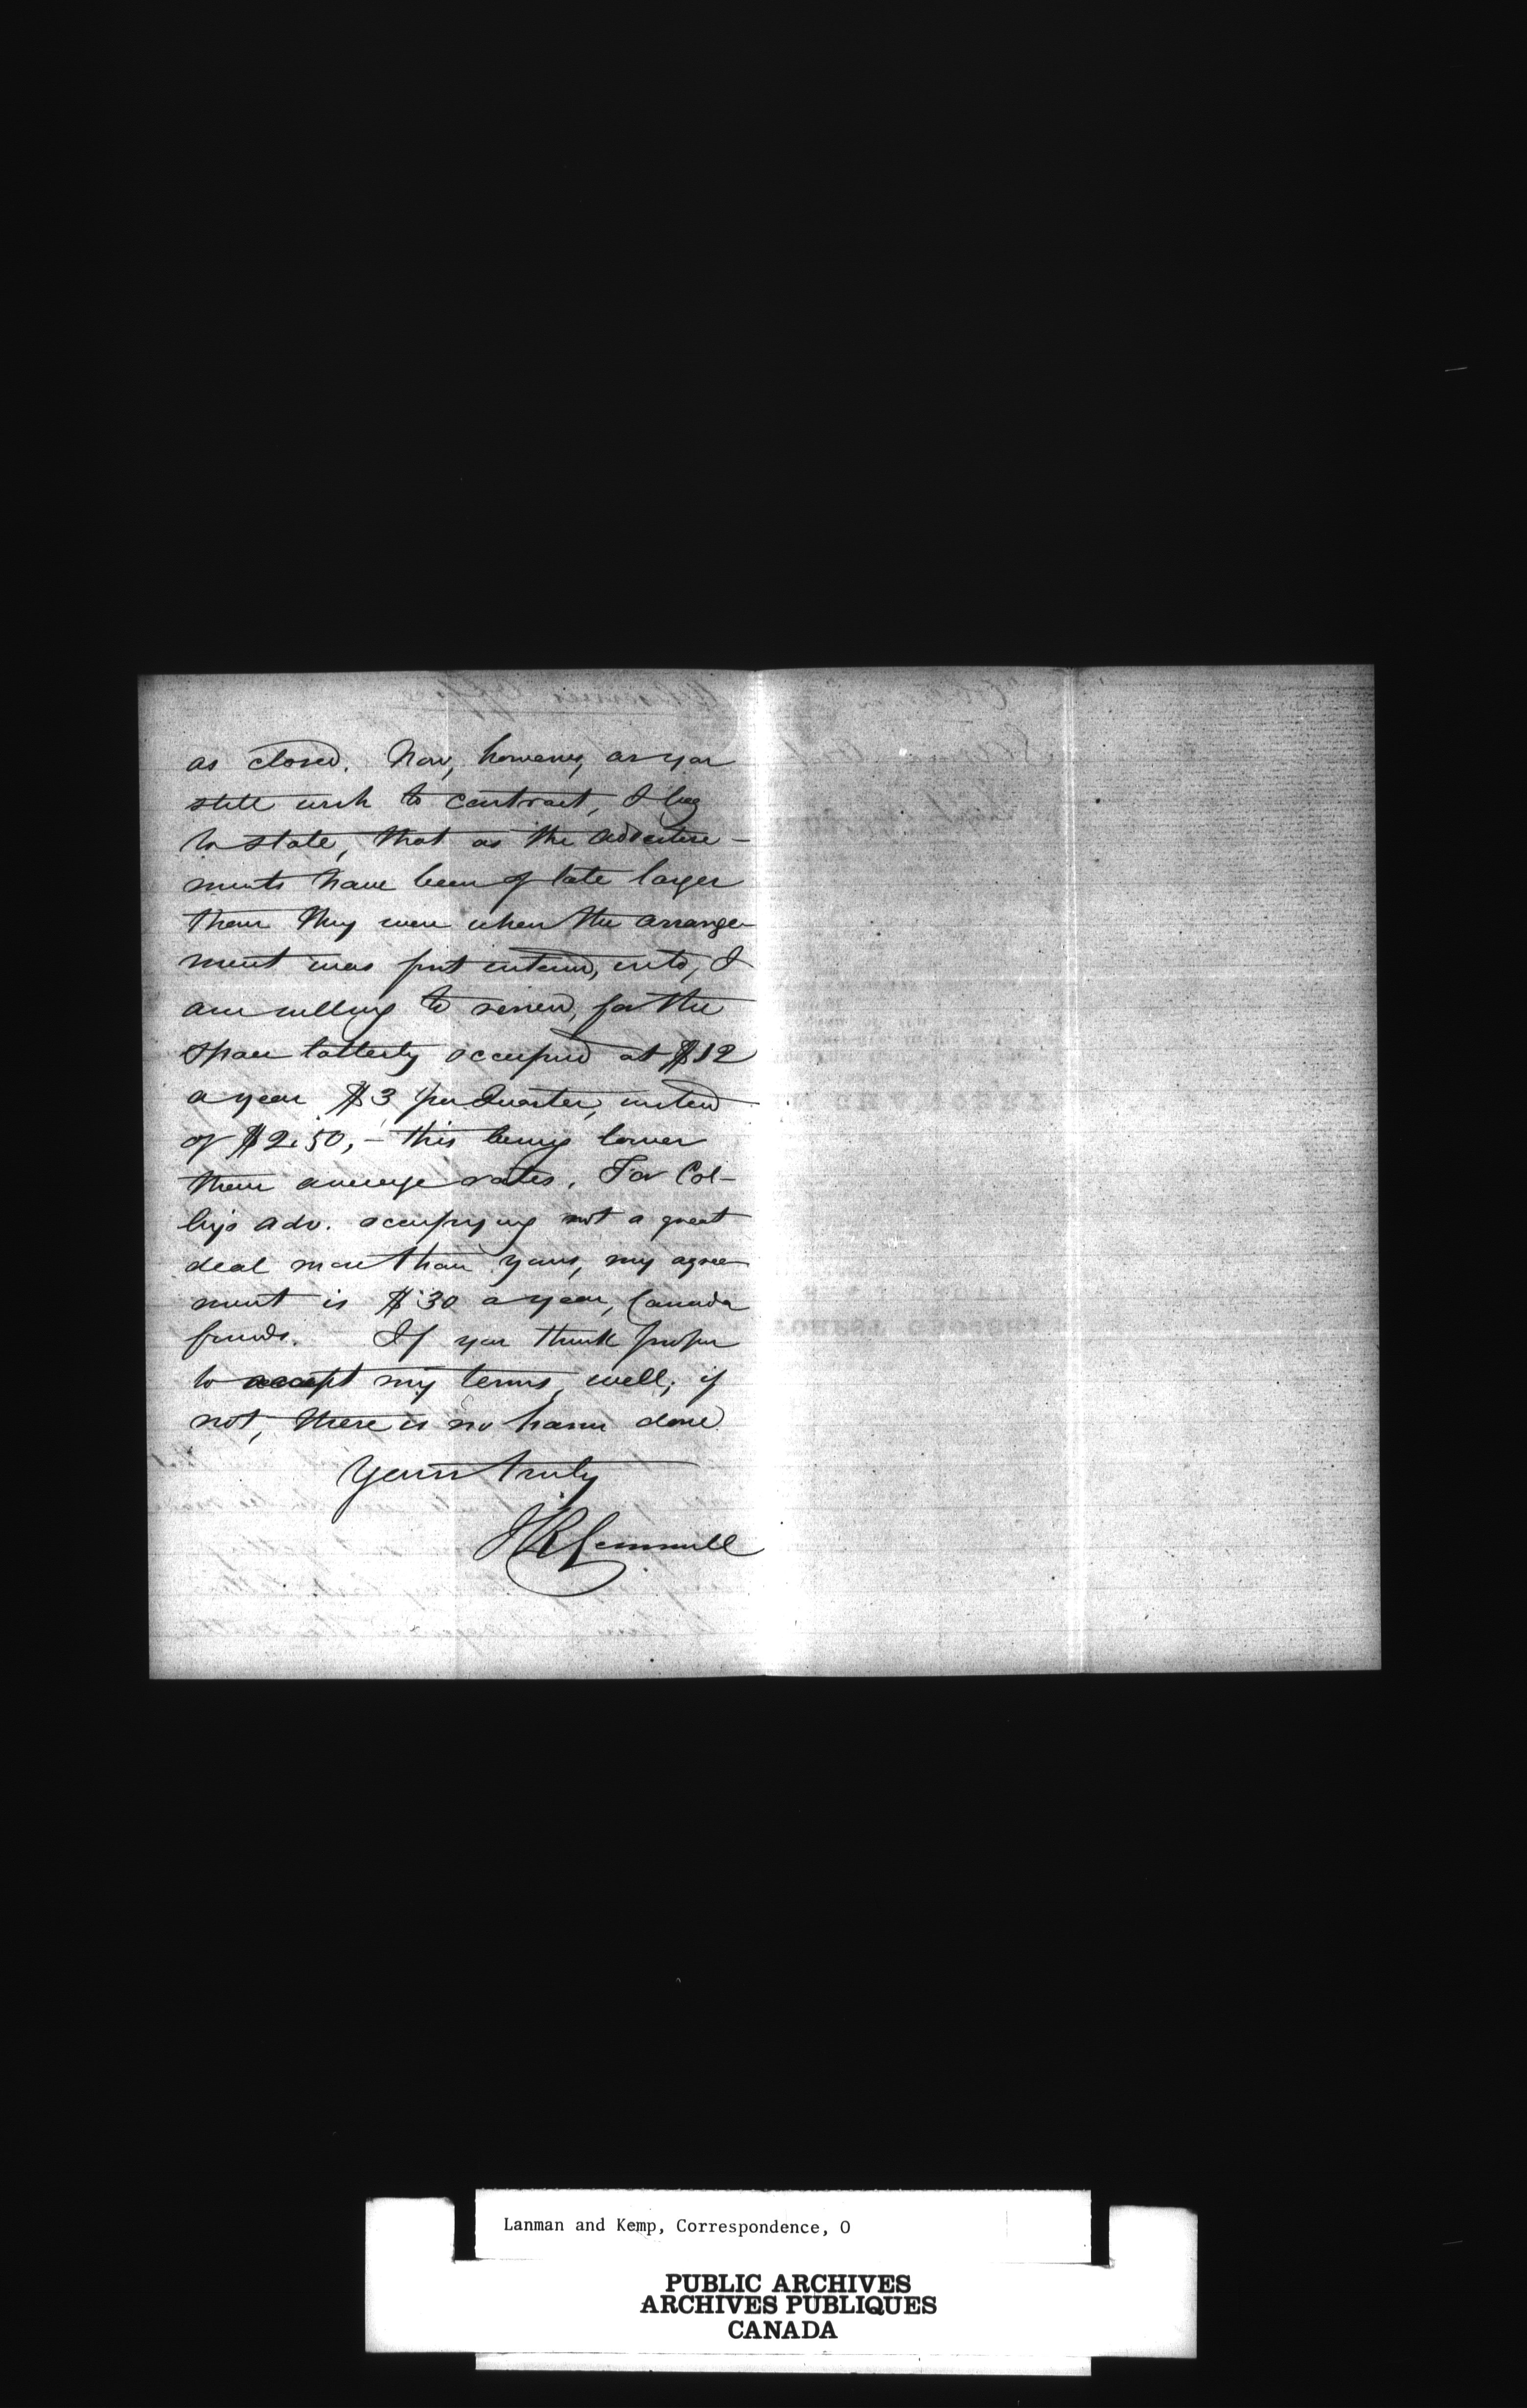 as closed. Now, however, as you
still wish to contract, I beg
to state, that as the advertise-
ments have been of late larger
than they were when the arrange-
ment was first entered, into, I
am willing to renew, for the
space latterly occupied at $12
a year $3 per Quarter, instead
of $2.50, - this being lower
than average rates. For Col-
by's adv. occupying not a great
deal more than yours, my agree-
ment is $30 a year, Canada
funds. If you think proper
to accept my terms, well; if
not, there is no harm done
Yours truly
J R Gemmill
Lanman and Kemp, Correspondence, O
PUBLIC ARCHIVES
ARCHIVES PUBLIQUES
CANADA